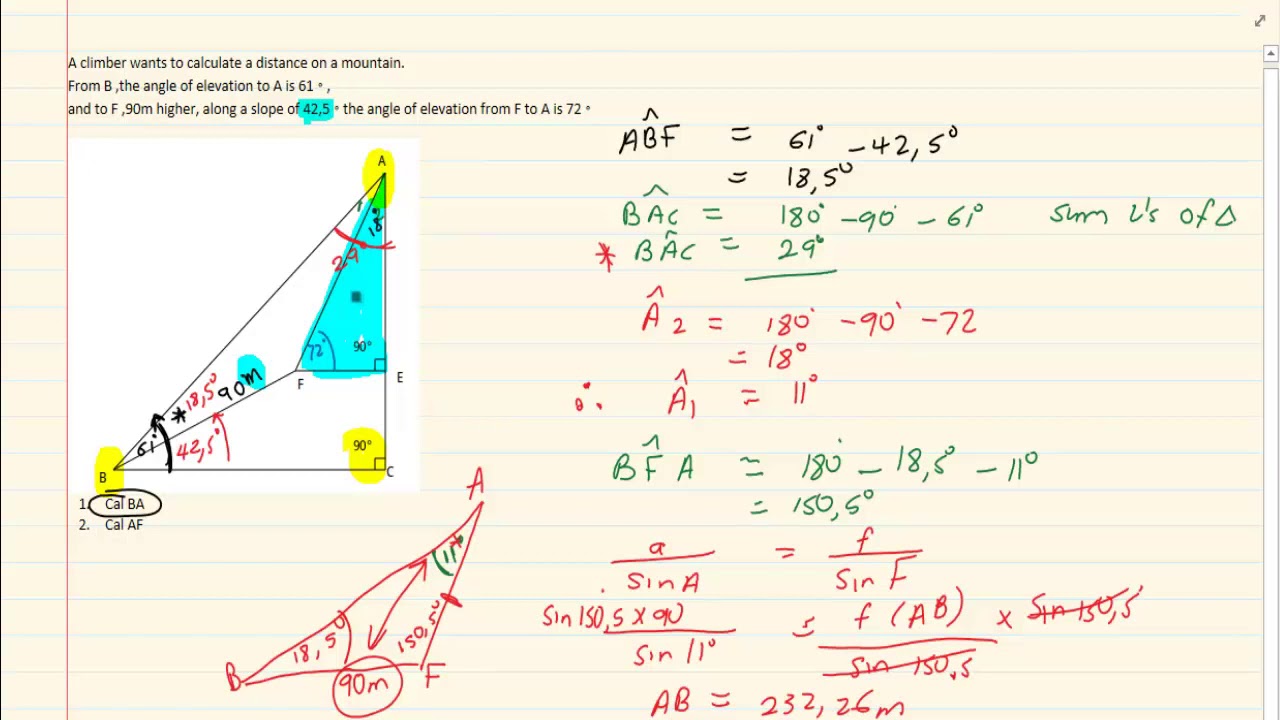 A climber wants to calculate a distance on a mountain.
From B ,the angle of elevation to A is 61 ° ,
and to F ,90m higher, along a slope of 42,5 ° the angle of elevation from F to A is 72 °
A
1
18°
29
72°
90°
F
E
*18,5° 90m
61°
42,5°
90°
B
C
1. Cal BA
2. Cal AF
A
11°
18,5°
150,5°
B
90m
F
AB̂F = 61° - 42,5°
= 18,5°
BÂC = 180° - 90° - 61° sum ∠'s of Δ
* BÂC = 29°
Â2 = 180° - 90° - 72
= 18°
∴ Â1 = 11°
BF̂A = 180° - 18,5° - 11°
= 150,5°
a/sin A = f/sin F
sin 150,5 x 90/sin 11° = f (AB)/sin 150,5 x sin 150,5
AB = 232,26m